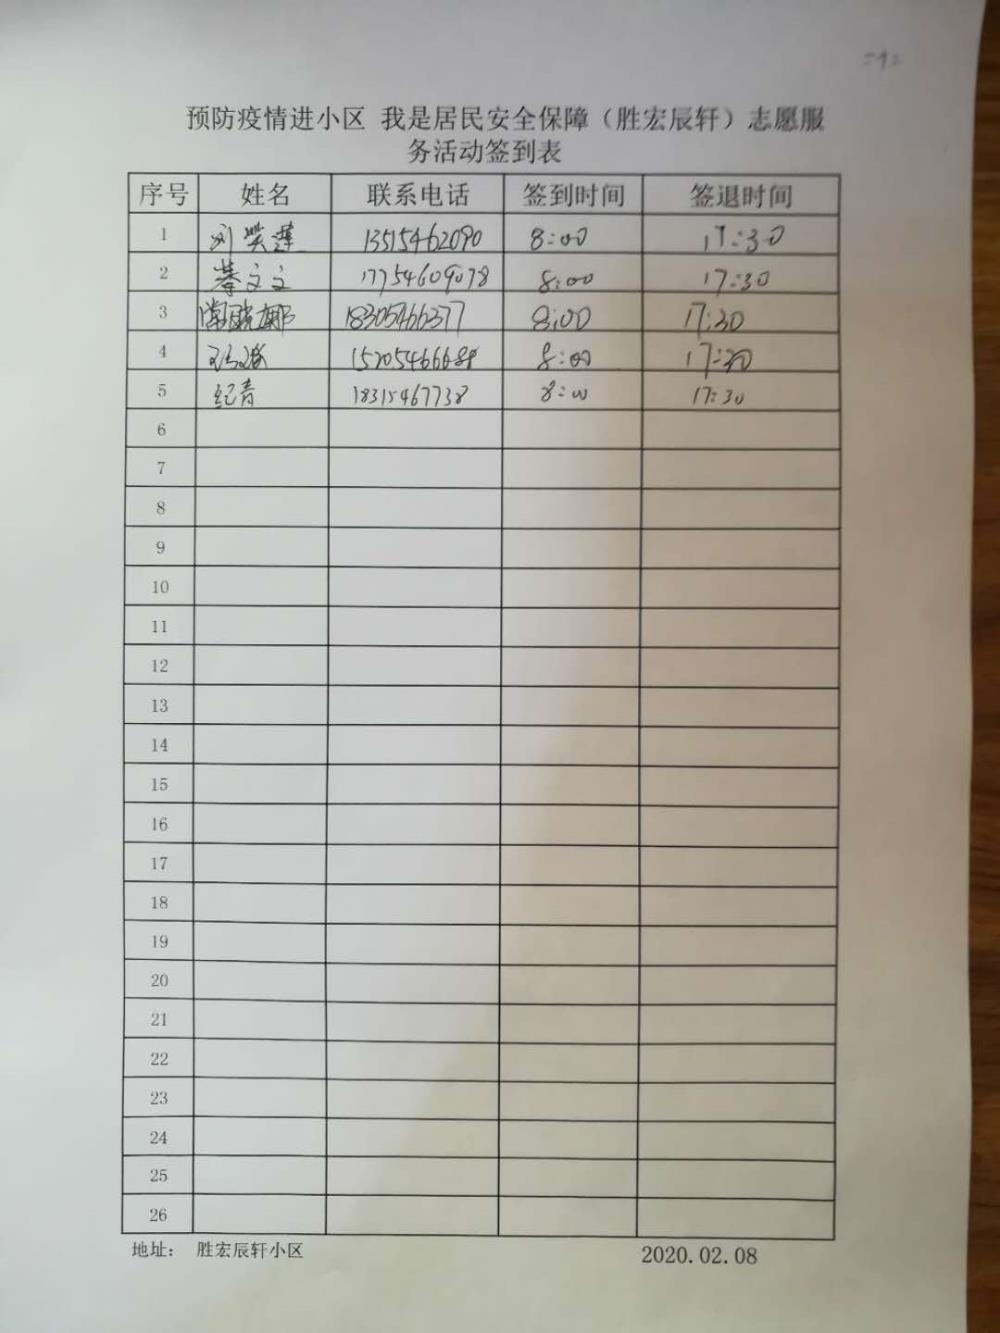 预防疫情进小区 我是居民安全保障（胜宏辰轩）志愿服
务活动签到表
序号 姓名 联系电话 签到时间 签退时间
1 刘笑莲 13515462090 8:00 17:30
2 綦文文 17754609078 8:00 17:30
3 18305466377 8:00 17:30
4 8:00 17:30
5 纪青 18315467738 8:00 17:30
6
7
8
9
10
11
12
13
14
15
16
17
18
19
20
21
22
23
24
25
26
地址： 胜宏辰轩小区 2020.02.08